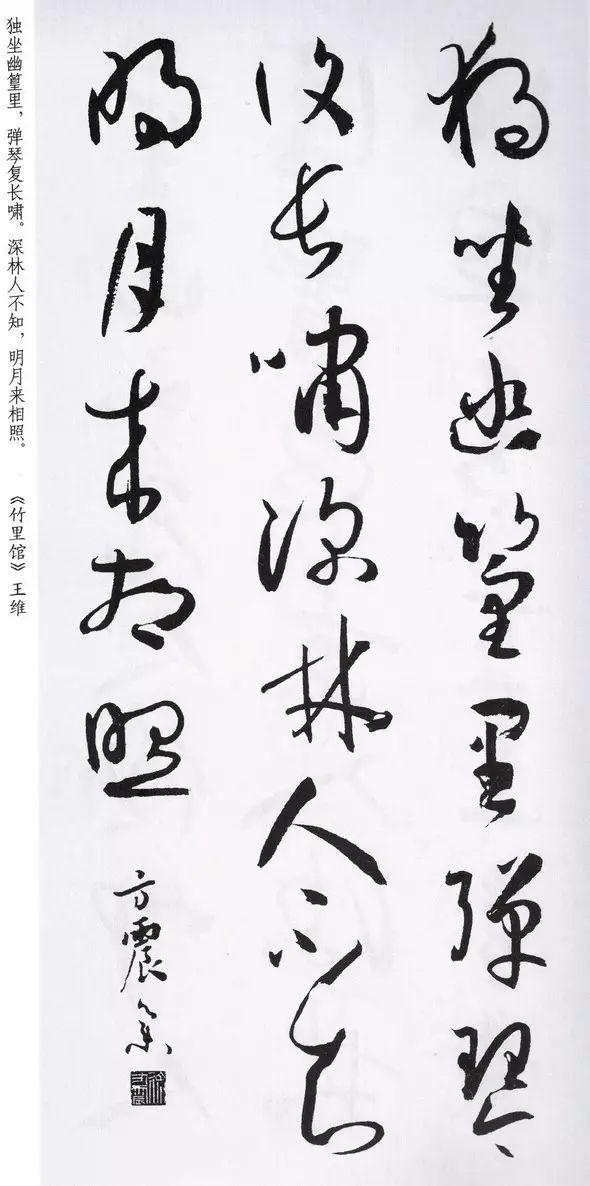 独坐幽篁里弹琴
复长啸深林人不知
明月来相照
方震篆
独坐幽篁里，弹琴复长啸。深林人不知，明月来相照。 《竹里馆》王维